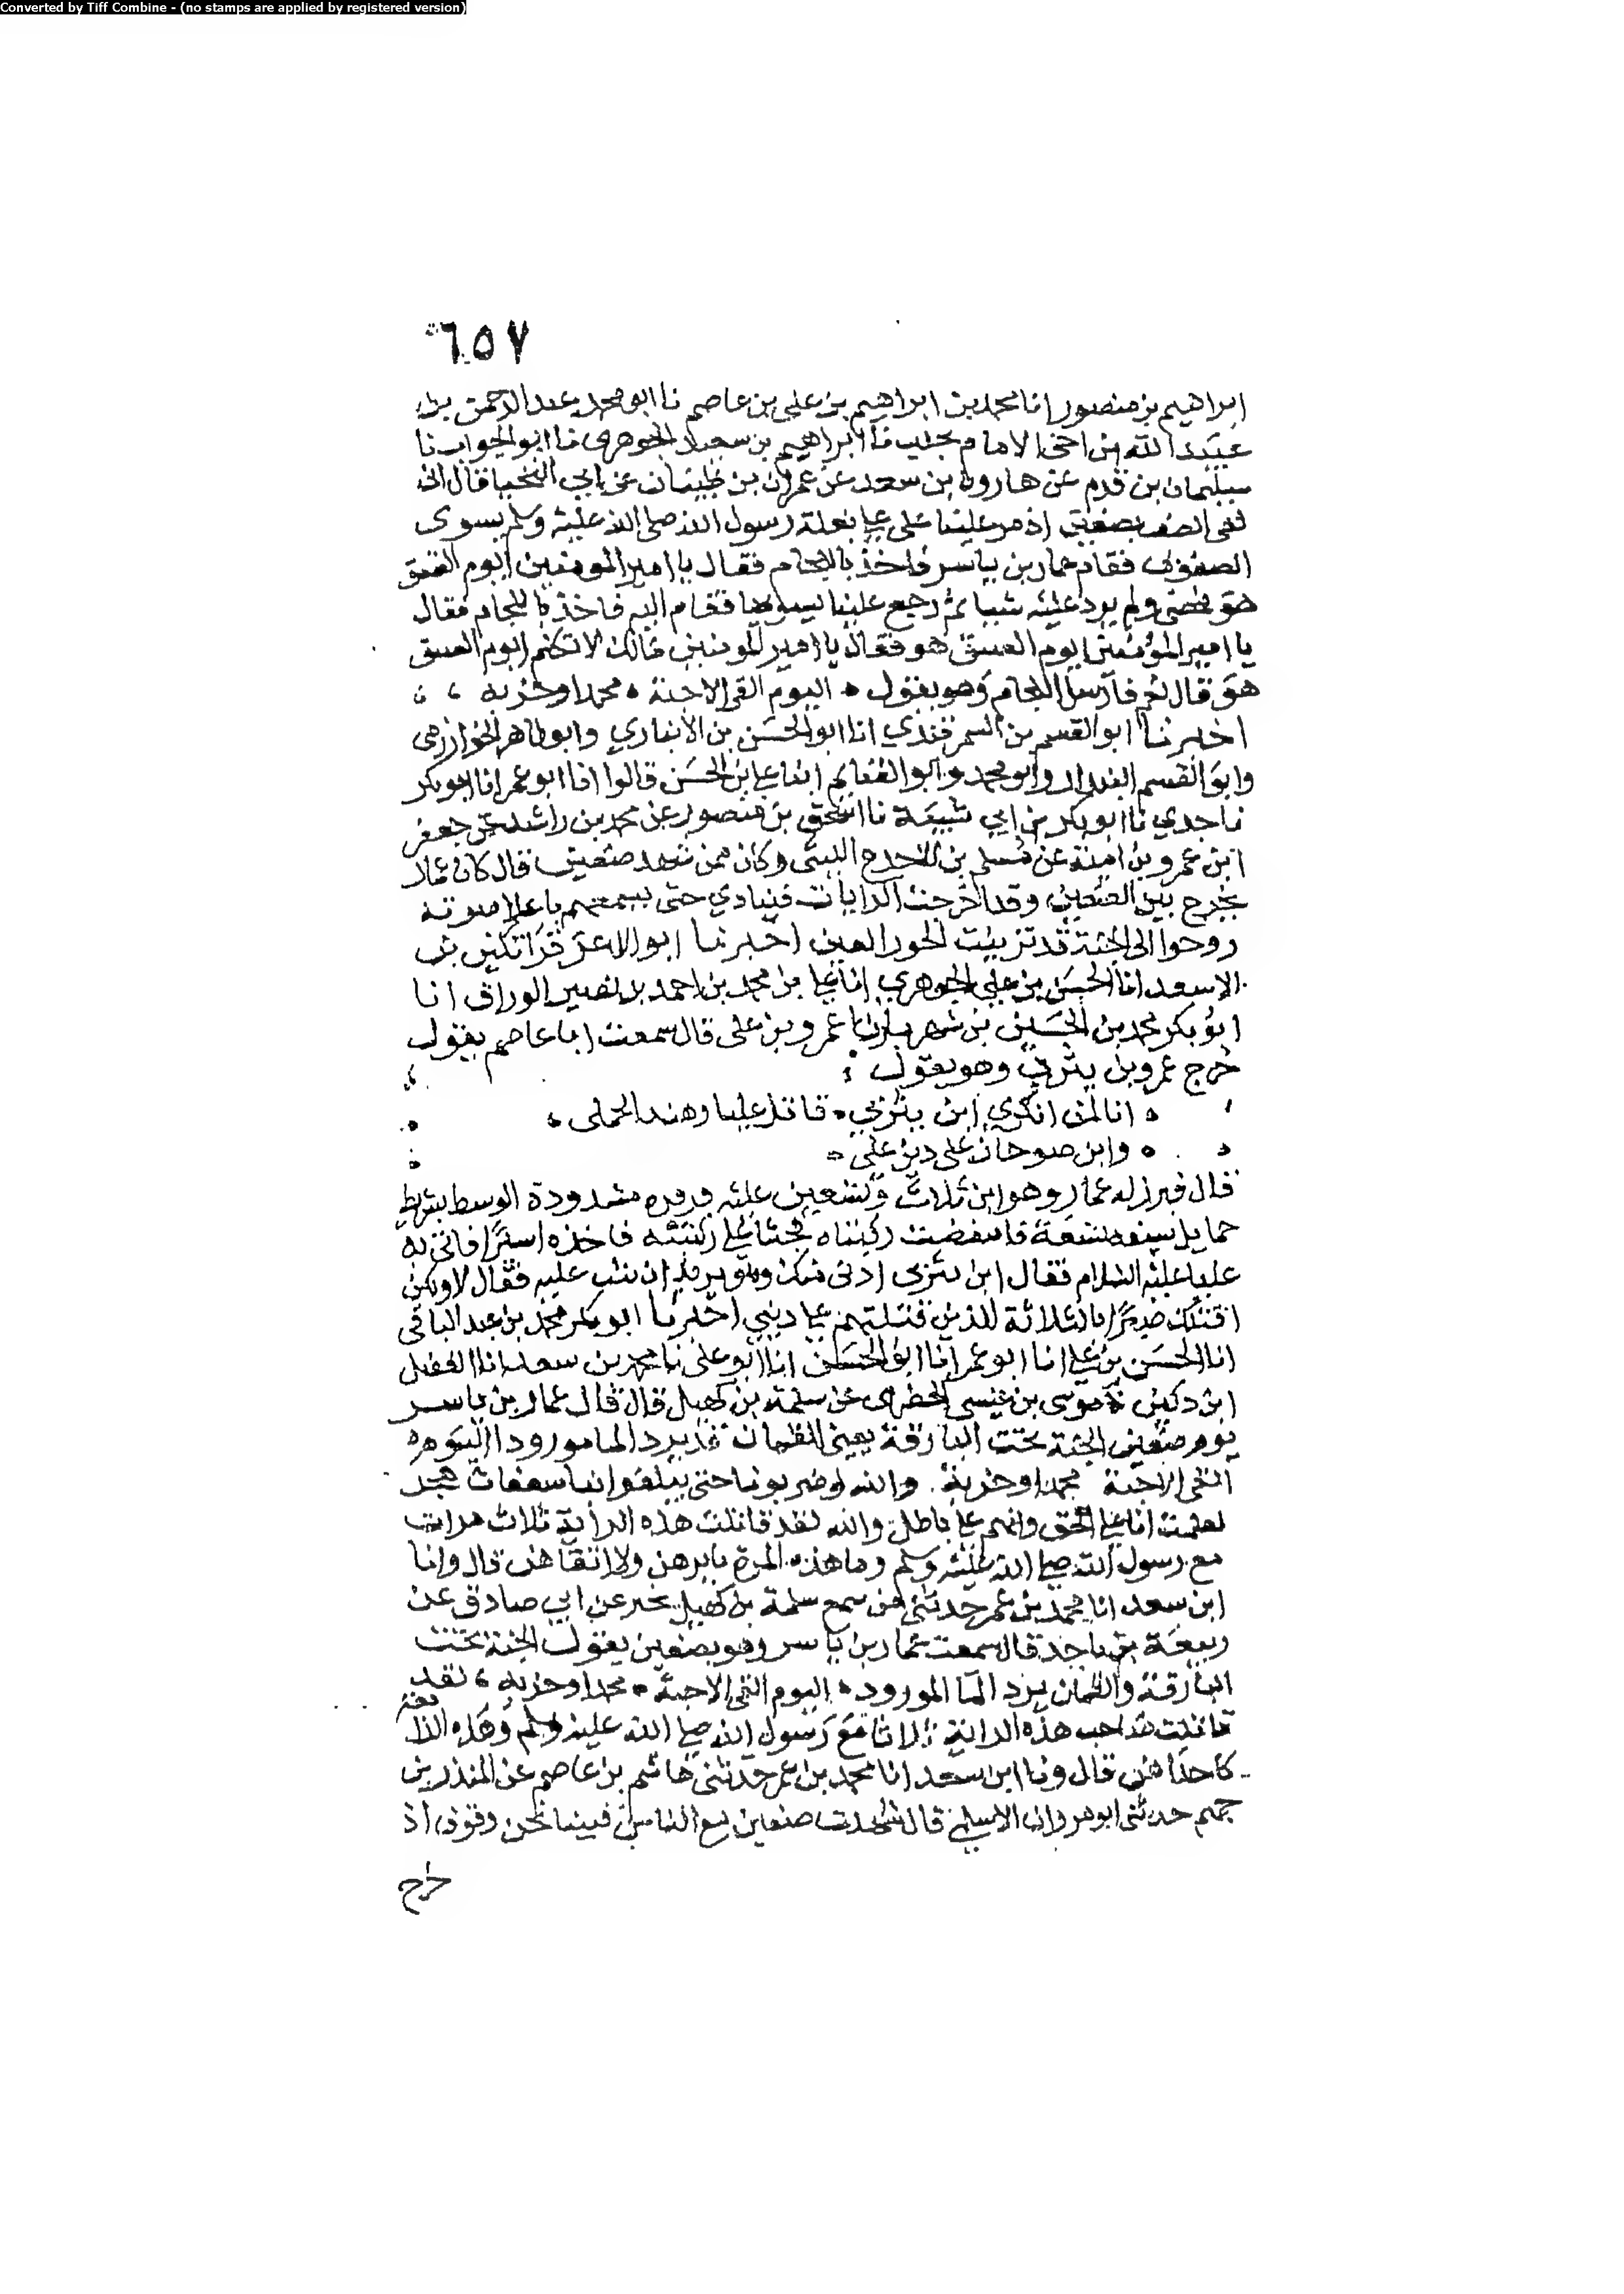 Converted by Tiff Combine - (no stamps are applied by registered version)
٦٥٧
ابراهيم بن منصور انا محمد بن ابراهيم بن علي بن عاصم نا ابو محمد عبد الرحمن بن
عبيد الله بن اخي الامام بحلب نا ابراهيم بن سعيد الجوهري نا ابو الجواب نا
سليمان بن قرم عن هارون بن سعد عن عمران بن ظبيان عن ابي قال اني
لفي الصف بصفين اذ مر علينا علي على بغلة رسول الله صلى الله عليه وسلم يسوي
الصفوف فقام عمار بن ياسر فاخذ بالجام فقال يا امير المومنين ايوم
هو فمضى ولم يرد عليه شيا ثم رجع علينا فقام اليه فاخذ باللجام فقال
يا امير المؤمنين ايوم هو فقال يا امير المومنين مالك لا تكلم ايوم
هو قال نعم فارسل اللجام وهو يقول اليوم القى الاحبة محمدا وحزبه
اخبرنا ابو القسم بن السمرقندي انا ابو الحسن بن الانباري وابو طاهر الخوارزمي
وابو القسم وابو محمد وابو الغنايم ابنا علي بن الحسن قالوا انا ابو عمر انا ابو بكر
نا جدي نا ابو بكر بن ابي شيبة نا اسحق بن منصور عن محمد بن راشد عن جعفر
ابن عمرو بن امية عن مسلم بن الاجدع الليثي وكان ممن شهد صفين قال كان عمار
يخرج بين الصفين وقد اخرجت الرايات فينادي حتى يسمعهم باعلا صوته
روحوا الى الجنة قد تزينت الحور العين اخبرنا ابو الاعز قراتكين بن
الاسعد انا الحسن بن علي الجوهري انا علي بن محمد بن احمد بن نصير الوراق انا
ابو بكر محمد بن الحسين بن شهريار نا عمرو بن علي قال سمعت ابا عاصم يقول
خرج عمرو بن يثربي وهو يقول
انا لمن انكرني ابن يثربي قاتل علبا وهند الجملي
وابن صوحان على دين علي
قال فبرز له عمار وهو ابن ثلاث وتسعين عليه فروه مشدودة الوسط بشريط
حمايل سيفه نسعة فانتقضت ركبتاه فجثا على ركبتيه فاخذه اسيرا فاتى به
عليا عليه السلام فقال ابن يثربي ادنني منك وهو يريد ان يثب عليه فقال لا ولكن
اقتلك صبرا بالثلاثة الذين قتلتهم على ديني اخبرنا ابو بكر محمد بن عبد الباقي
انا الحسن بن علي انا ابو عمر انا ابو الحسن انا ابو علي نا محمد بن سعد انا الفضل
ابن دكين نا موسى بن عيسى الحضرمي عن سلمة بن كهيل قال قال عمار بن ياسر
يوم صفين الجنة تحت البارقة يعني الظمان قد يرد الما مورودا اليوم
القى الاحبة محمدا وحزبه والله لو ضربونا حتى يبلغوا بنا سعفات هجر
لعلمت انا على الحق وانهم على باطل والله لقد قاتلت هذه الراية ثلاث مرات
مع رسول الله صلى الله عليه وسلم وما هذه المرة بابرهن ولا اتقاهن قال وانا
ابن سعد انا محمد بن عمر حدثني من سمع سلمة بن كهيل يخبر عن ابي صادق عن
ربيعة بن ناجد قال سمعت عمار بن ياسر وهو بصفين يقول الجنة تحت
البارقة والظمان يرد الما المورود اليوم القى الاحبة محمدا وحزبه لقد
قاتلت صاحب هذه الراية ثلاثا مع رسول الله صلى الله عليه وسلم وهذه
كاحداهن قال ونا ابن سعد انا محمد بن عمر حدثني هاشم بن عاصم عن المنذر بن
جهم حدثني ابو مروان الاسلمي قال شهدت صفين مع الناس فبينا نحن وقوف اذ
خرج